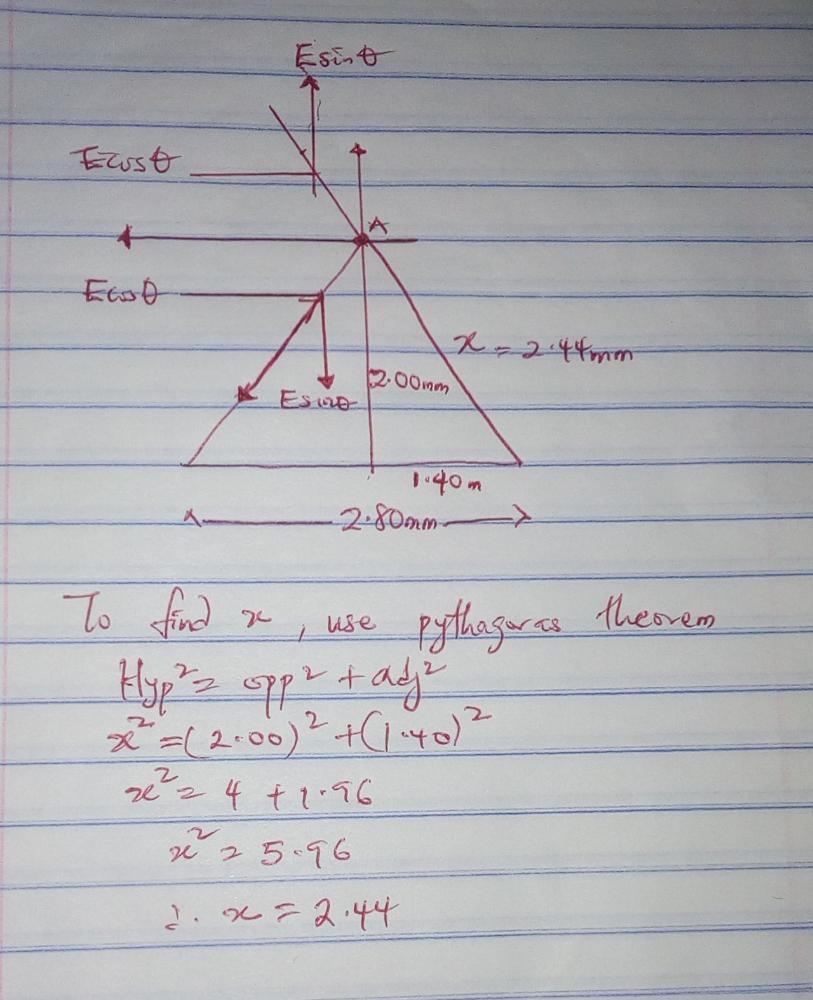 Esinθ
Ecosθ
A
Ecosθ
x = 2.44mm
2.00mm
Esinθ
1.40m
2.80mm
To find x, use pythagoras theorem
Hyp² = opp² + adj²
x² = (2.00)² + (1.40)²
x² = 4 + 1.96
x² = 5.96
∴ x = 2.44